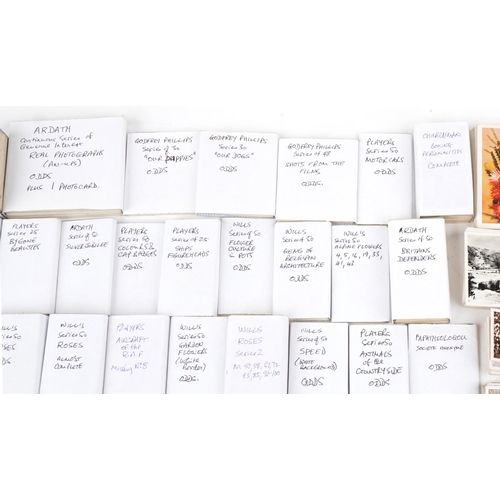 ARDATH
Continuous Series of
General Interest
REAL PHOTOGRAPHS
ODDS
PLUS 1 PHOTOCARD.
GODFREY PHILLIPS
Series of 30
"OUR PUPPIES"
ODDS
GODFREY PHILLIPS
"OUR DOGS"
ODDS
GODFREY PHILLIPS
Series of 48
SHOTS FROM THE
FILMS
ODDS.
PLAYERS
Series 50
MOTOR CARS
ODDS
CHURCHMAN
BOXING
PERSONALITIES
COMPLETE
PLAYERS
Series 25
BYGONE
BEAUTIES
ARDATH
Series of 50
SILVER JUBILEE
ODDS
PLAYERS
Series 50
COLOURS &
CAP BADGES
ODDS
PLAYERS
Series of 25
SHIPS
FIGUREHEADS
ODDS
WILLS
Series 50
FLOWER
CULTURE
& POTS
ODDS
WILLS
Series of 50
GEMS OF
BELGIAN
ARCHITECTURE
ODDS
WILL'S
Series 50
ALPINE FLOWERS
4, 5, 16, 19, 33,
41, 43
ARDATH
Series of 50
BRITAINS
DEFENDERS
ODDS
ODDS
WILL'S
Series 50
ROSES
ALMOST
COMPLETE
PLAYERS
AIRCRAFT
OF THE
R.A.F
Missing No 8
WILL'S
Series 50
GARDEN
FLOWERS
(WHITE
BORDER)
ODDS.
WILLS
ROSES
Series 2
WILLS
Series of 50
SPEED
(WHITE
BACKGROUND)
ODDS
PLAYERS
Series 50
ANIMALS
OF THE
COUNTRYSIDE
ODDS
PAPATHEOLOGOU
SOCIETE ANONYME
ODDS